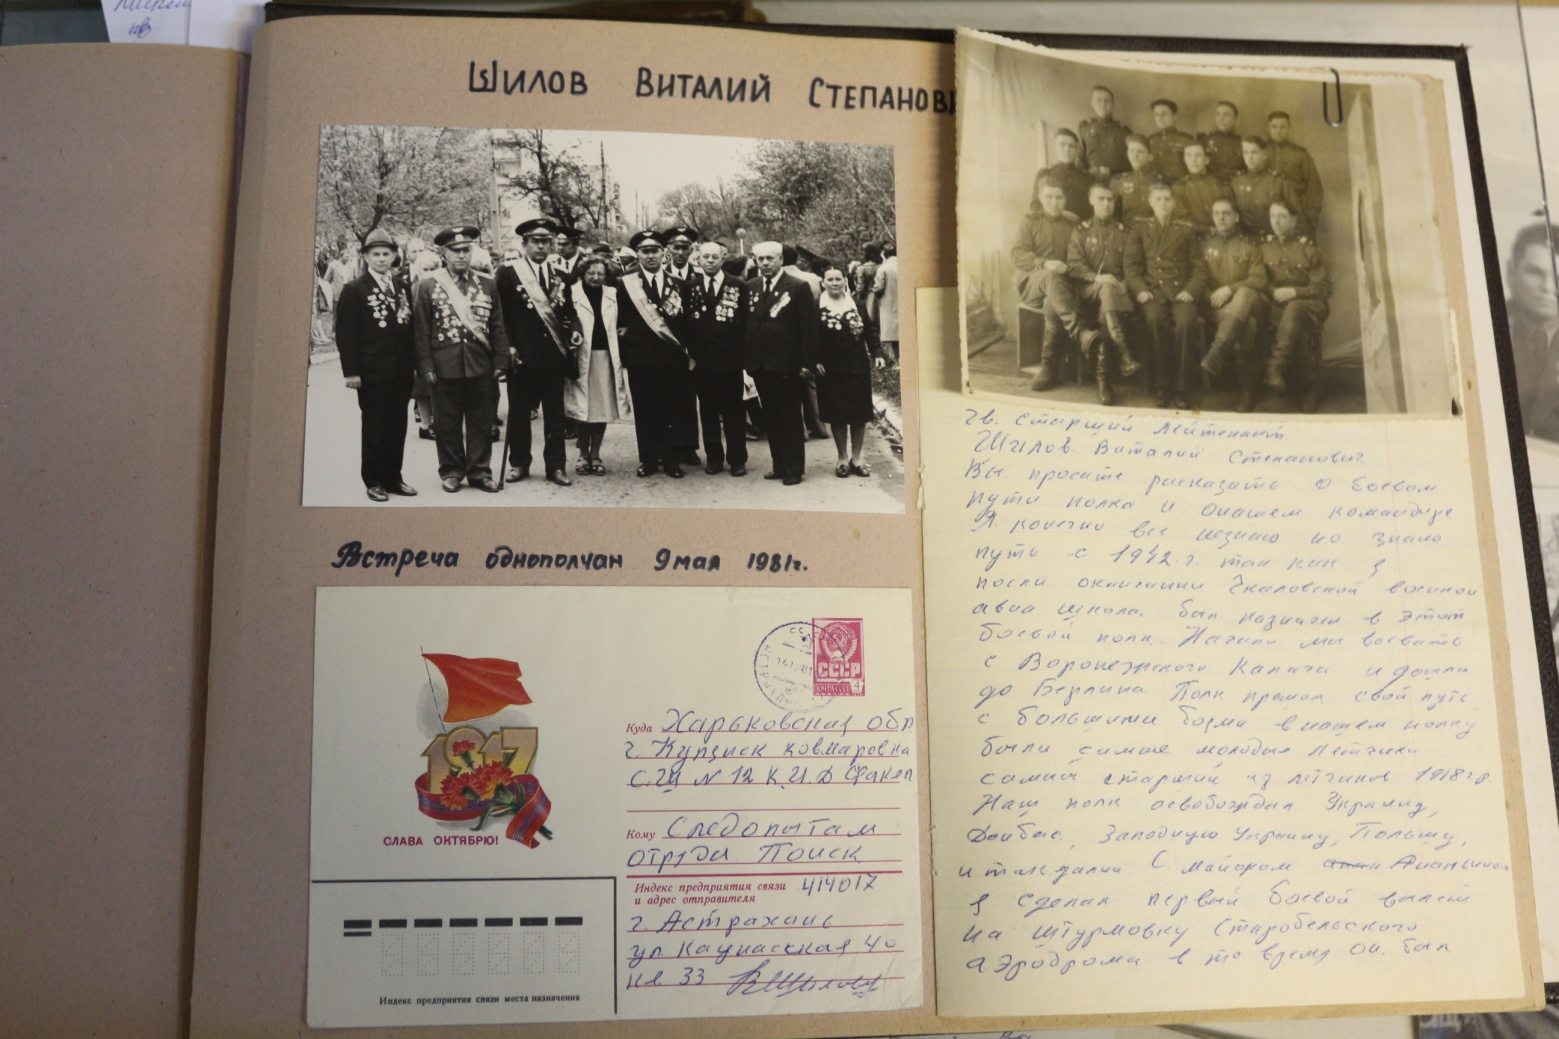 Шилов Виталий Степанов
Встреча однополчан 9 мая 1981г.
СЛАВА ОКТЯБРЮ!
1917
СССР
4
Куда Харьковская обл
г. Купянск
С.Ш N 12 К.И.Д Факел
Кому Следопытам
отряда Поиск
Индекс предприятия связи
и адрес отправителя
414017
г. Астрахань
ул. 40
кв. 33
Индекс предприятия связи места назначения
Гв. старший лейтенант
Шилов Виталий Степанович
Вы просите о боевом
пути полка и командире
Я все но знаю
путь с 1942 г. так как я
военной
авиа школа был назначен в этот
боевой полк. Начали мы воевать
с Воронежского и дошли
до Берлина. Полк прошол свой путь
с большими в нашем полку
были самые молодые
самый старший из 1918 г.р.
Наш полк освобождал Украину,
Западную Украину, Польшу,
и так далии С майором
я сделал первый боевой вылет
на штурмовку Старобельского
аэродрома в то время он был